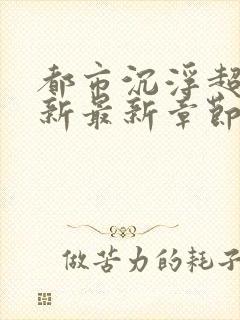 都市沉浮超
新最新章节
做苦力的耗子